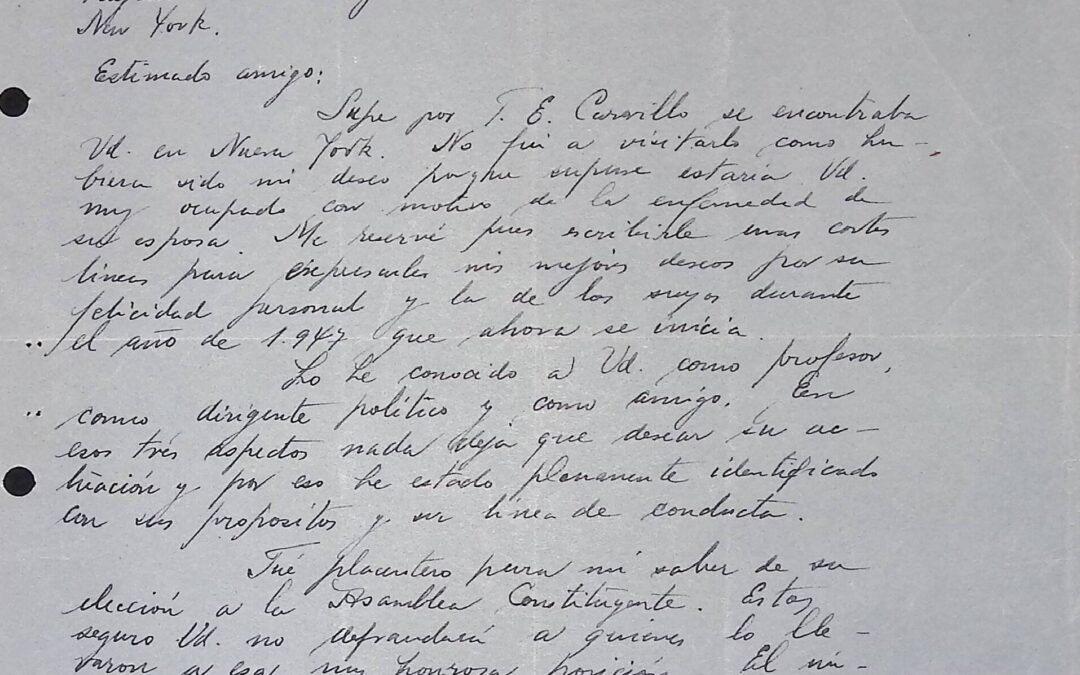 New York.
Estimado amigo:
Supe por T. E. Carrillo se encontraba
Vd. en Nueva York. No fui a visitarlo como hu-
biera sido mi deseo porque supuse estaría Vd.
muy ocupado con motivo de la enfermedad de
su esposa. Me reservé pues escribirle unas cortas
líneas para expresarles mis mejores deseos por su
felicidad personal y la de los suyos durante
el año de 1.947 que ahora se inicia.
Lo he conocido a Vd. como profesor,
como dirigente político y como amigo. En
esos trés aspectos nada deja que desear su ac-
tuación y por eso he estado plenamente identificado
con sus propositos y su línea de conducta.
Fué placentero para mi saber de su
elección a la Asamblea Constituyente. Estoy
seguro Vd. no defraudará a quienes lo lle-
varon a esa muy honrosa posición. El